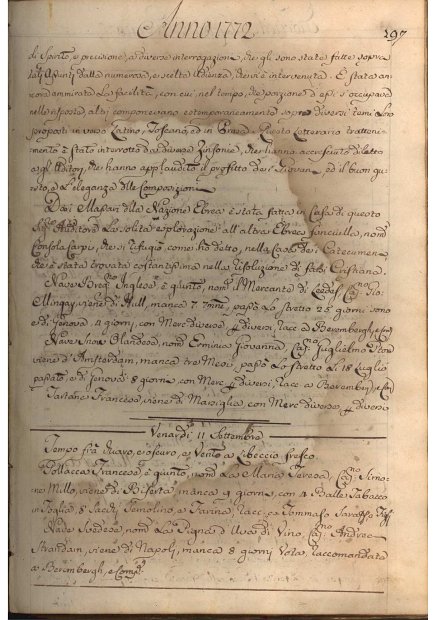 Anno 1772
297
di Spirito, e precisione, a diverse interrogazioni, che gli sono state fatte sopra
tali assunti dalla numerosa, e scelta Udienza, che vi è intervenuta. È stata an
cora ammirata la facilità, con cui, nel tempo, che porzione d'essi s'occupava
nelle risposte, altri componevano estemporaneamente sopra diversi temi loro
proposti in verso Latino, Toscano, ed in Prosa. Questo Letterario tratteni-
mento è stato interrotto da diverse Sinfonie, che hanno accresciuto diletto
agl'Uditori, che hanno applaudito il profitto dei Giovani, ed il buon gu
sto, e l'eleganza delle Composizioni.
Dai Massari della Nazione Ebrea è stata fatta in Casa di questo
Sig.re Auditore la solita esplorazione all'altra Ebrea fanciulla, nom.a
Consola Carpi, che si rifugiò, come hò detto, nella Casa dei Catecumeni,
che è stata trovata costantissima nella risoluzione di farsi Cristiana.
Nave Inglese è giunto, nom. il Mercante di Leeds, Cap.no Gio.
viene di Hull, manca 7 passò lo stretto 25 giorni sono
e di Genova 4 giorni, con Merci diverse p diversi, racc. a Berembergh, e
Nave Snow Olandese nom. Erminia Giovanna, Cap. Guglielmo
viene d'Amsterdam, manca tre Mesi, passò lo stretto li 18 luglio
passato, e di Genova 8 giorni, con Merci p diversi, racc. a Berembergh, e
Tartana Francese, viene di Marsiglia, con Merci diverse p diversi
Venerdì 11 Settembre
Tempo frà chiaro, e oscuro, e Vento a Libeccio fresco.
Pollacca Francese è giunta, nom. La Maria Teresa, Cap. Simo-
ne Millo, viene di Biserta, manca 9 giorni, con 4 Balle Tabacco
in foglia, 8 Sacchi Semolino, e Farina, racc. a Tommaso
Nave Svedese, nom. La Pigna d'Uva di Vino, Cap.no Andrea
Strandain, viene di Napoli, manca 8 giorni Vota, raccomandata
a Berembergh, e Comp.